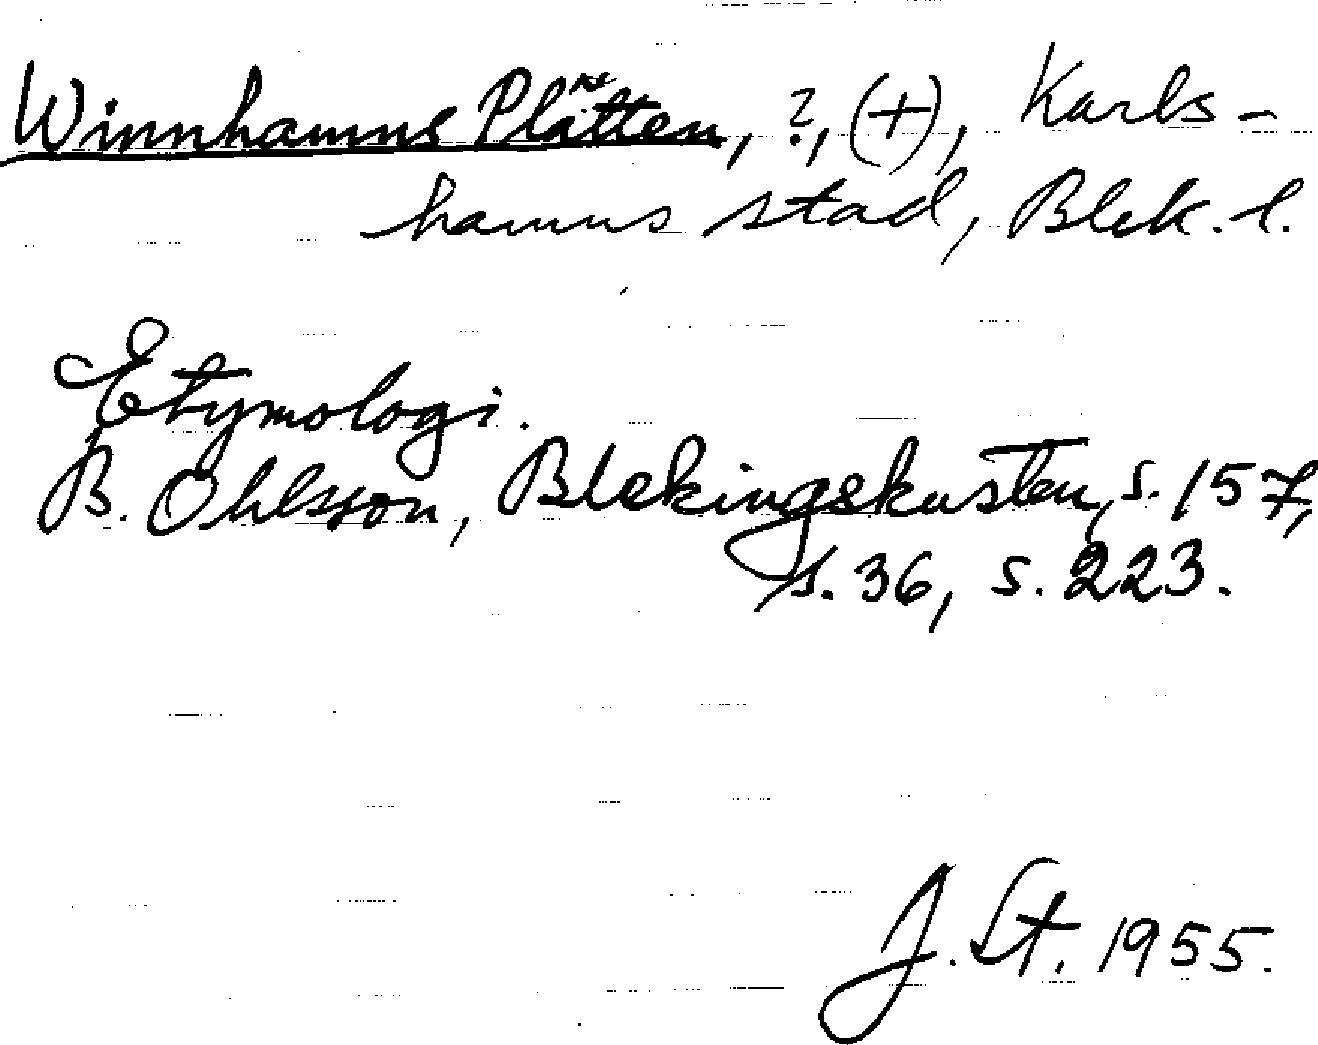 Winnhamns Plätten, ?, (+), Karls-
hamns stad, Blek. l.
Etymologi.
B. Ohlsson, Blekingskusten, s. 157,
s. 36, s. 223.
J. St. 1955.